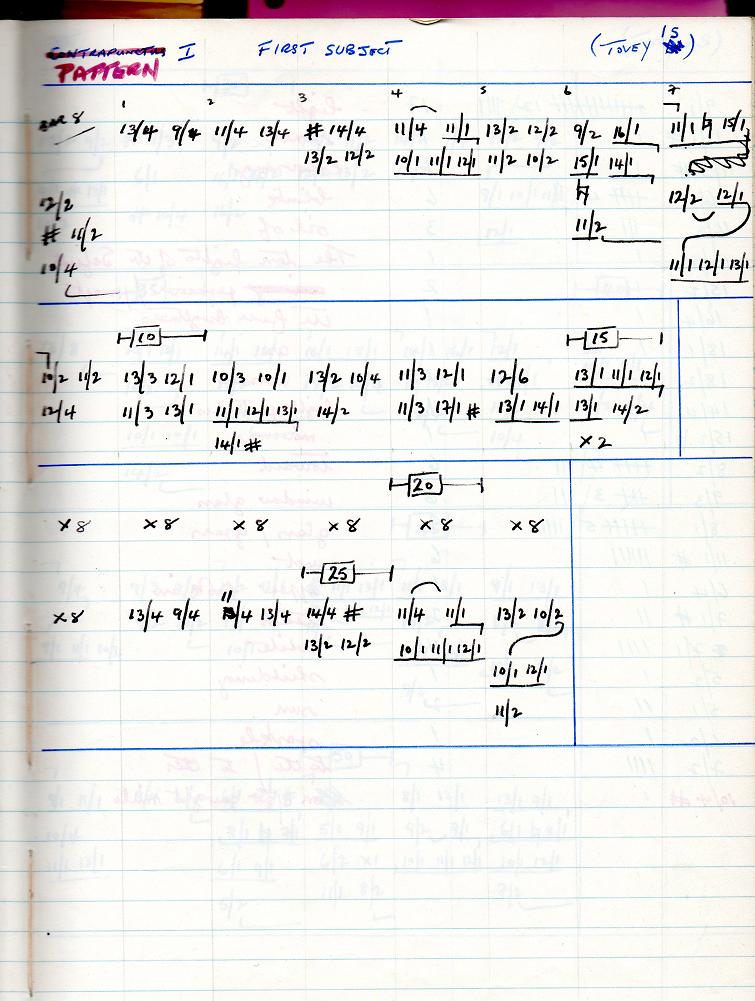 CONTRAPUNCTUS I FIRST SUBJECT (TOVEY 15)
PATTERN
1 2 3 4 5 6 7
BAR 8 13/4 9/4 11/4 13/4 # 14/4 11/4 11/1 13/2 12/2 9/2 16/1 11/1 15/1
13/2 12/2 10/1 11/1 12/1 11/2 10/2 15/1 14/1
12/2 12/2 12/1
# 11/2 11/2
10/4 11/1 12/1 13/1
10 15
10/2 11/2 13/3 12/1 10/3 10/1 13/2 10/4 11/3 12/1 12/6 13/1 11/1 12/1
12/4 11/3 13/1 11/1 12/1 13/1 14/2 11/3 17/1 # 13/1 14/1 13/1 14/2
14/1 # × 2
20
× 8 × 8 × 8 × 8 × 8 × 8
25
× 8 13/4 9/4 11/4 13/4 14/4 # 11/4 11/1 13/2 10/2
13/2 12/2 10/1 11/1 12/1
10/1 12/1
11/2